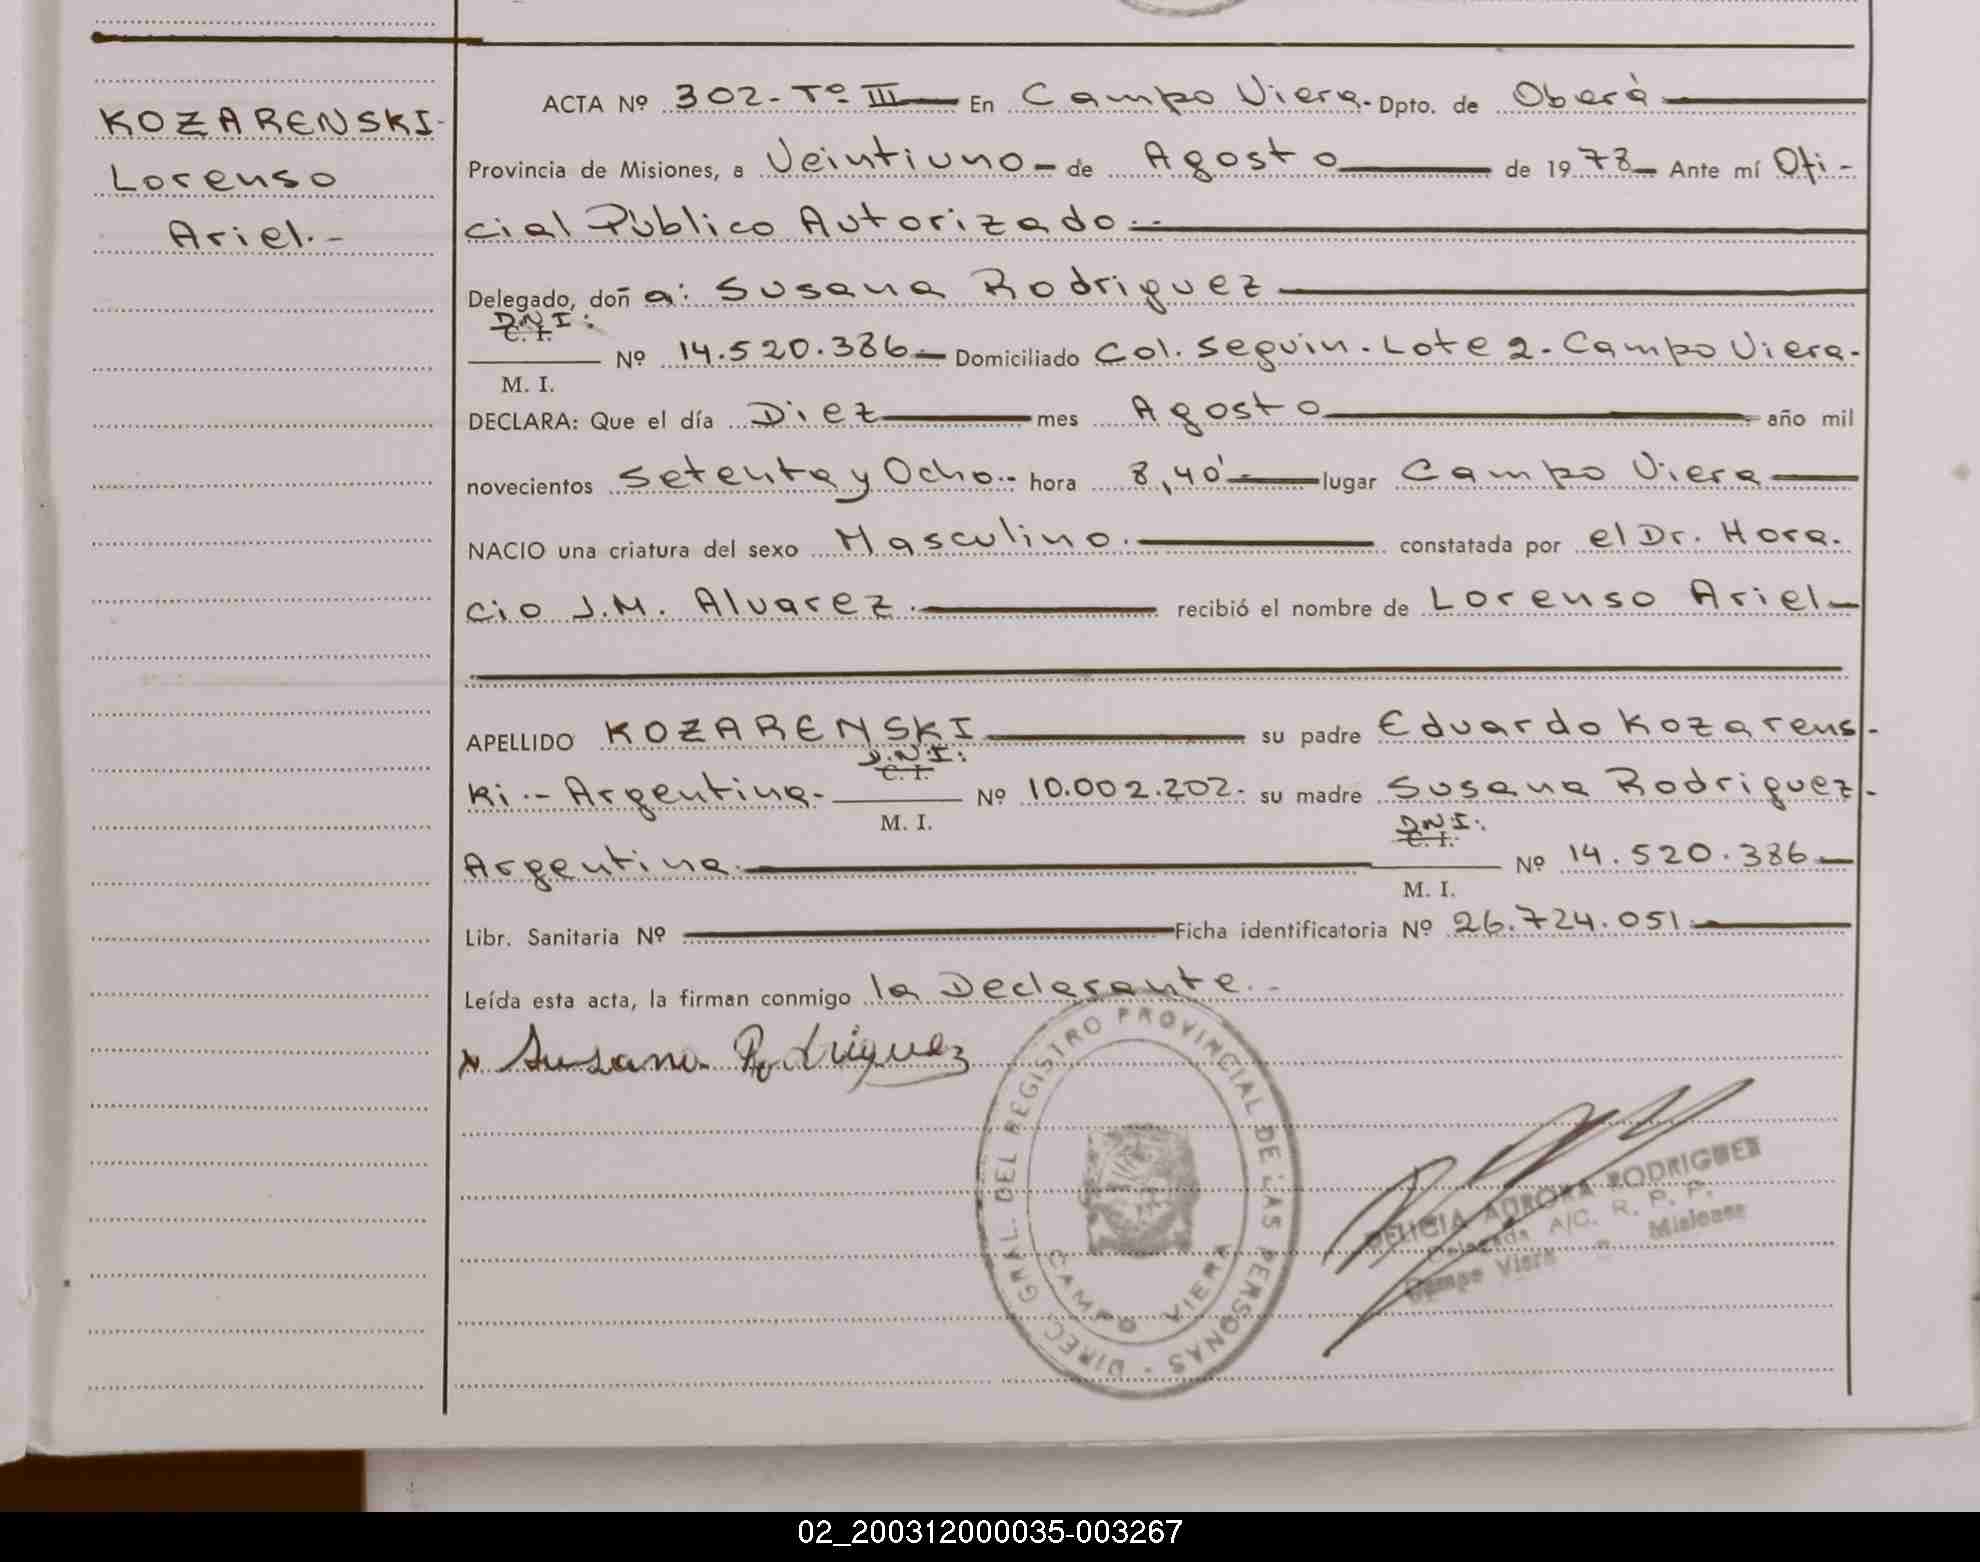 KOZARENSKI-
Lorenso
Ariel.-
ACTA Nº 302-Tº III En Campo Viera- Dpto. de Oberà
Provincia de Misiones, a Veintiuno - de Agosto de 1978 Ante mí Ofi-
cial Pùblico Autorizado.-
Delegado, doñ a: Susana Rodriguez
D.N.I:
C. I.
M. I.
Nº 14.520.386 Domiciliado Col. Seguin. Lote 2- Campo Viera.
DECLARA: Que el día Diez mes Agosto año mil
novecientos Setenta y Ocho.- hora 8,40' lugar Campo Viera
NACIO una criatura del sexo Masculino. constatada por el Dr. Hora.
cio J.M. Alvarez. recibió el nombre de Lorenso Ariel
APELLIDO KOZARENSKI su padre Eduardo Kozarens-
D.N.I:
C. I.
ki.- Argentina- M. I. Nº 10.002.202. su madre Susana Rodriguez-
D.N.I:
C. I.
Argentina. M. I. Nº 14.520.386
Libr. Sanitaria Nº Ficha identificatoria Nº 26.724.051.
Leída esta acta, la firman conmigo la Declarante.-
x Susana Rodriguez
DIREC. GRAL. DEL REGISTRO PROVINCIAL DE LAS PERSONAS
CAMPO VIERA
DELICIA AURORA RODRIGUEZ
Delegada A/C. R. P. P.
Campo Viera - Misiones
02_200312000035-003267